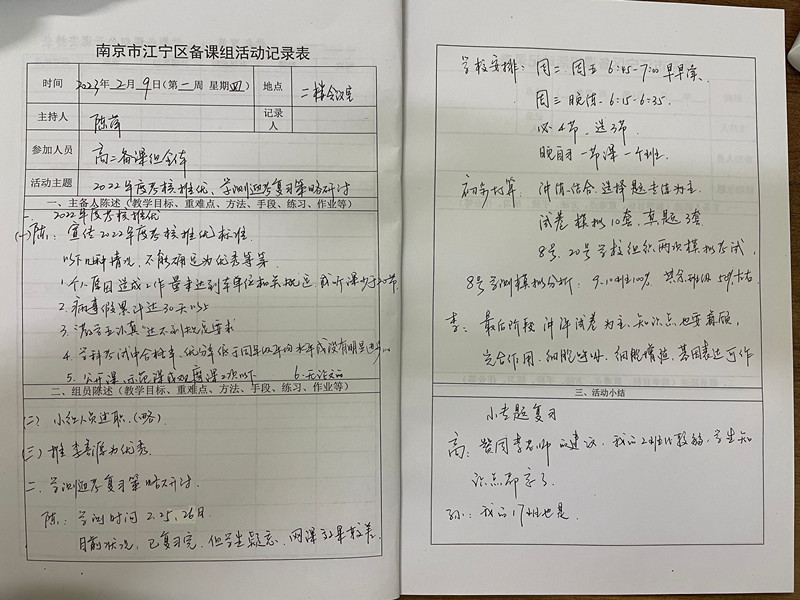 南京市江宁区备课组活动记录表
时间 2023年2月9日(第一周 星期四) 地点 二楼会议室
主持人 陈萍 记录人
参加人员 高二备课组全体
活动主题 2022年度考核推优、学测迎考复习策略研讨
一、主备人陈述(教学目标、重难点、方法、手段、练习、作业等)
一. 2022年度考核推优
(一)陈:宣传2022年度考核推优标准.
以下几种情况,不能确定为优秀等等
1.个人原因造成工作量未达到本单位相关规定,或听课少于20节
2.病事假累计达30天以上
3.教学五认真"达不到规定要求
4.学科考试中合格率、优分率低于同年级平均水平或没有明显进步
5.公开课、示范课或观摩课2次以下 6.无论文的
二、组员陈述(教学目标、重难点、方法、手段、练习、作业等)
(二)小组人员述职.(略)
(三)推李 为优秀.
二.学测迎考复习策略研讨.
陈:学测时间 2.25、26日.
目前状况,已复习完,但学生易忘.网课效果较差.
学校安排:周二 周五 6:45-7:00早早读、
周三晚读 6:15-6:35.
必4节、选3节.
晚自习一节课 一个班.
初步打算:讲练结合 选择题专练为主.
试卷 模拟10套、真题3套.
8号、20号学校组织两次模拟考试,
8号学测模拟分析:9-10班100% 其余班级50%左右
李:最后阶段 讲评试卷为主、知识点也要兼顾,
光合作用、细胞呼吸、细胞增殖、基因表达可作
三、活动小结
小专题复习
高:赞同李老师的建议,我的2班比较弱,学生知
识点都忘了.
孙:我的17班也是.